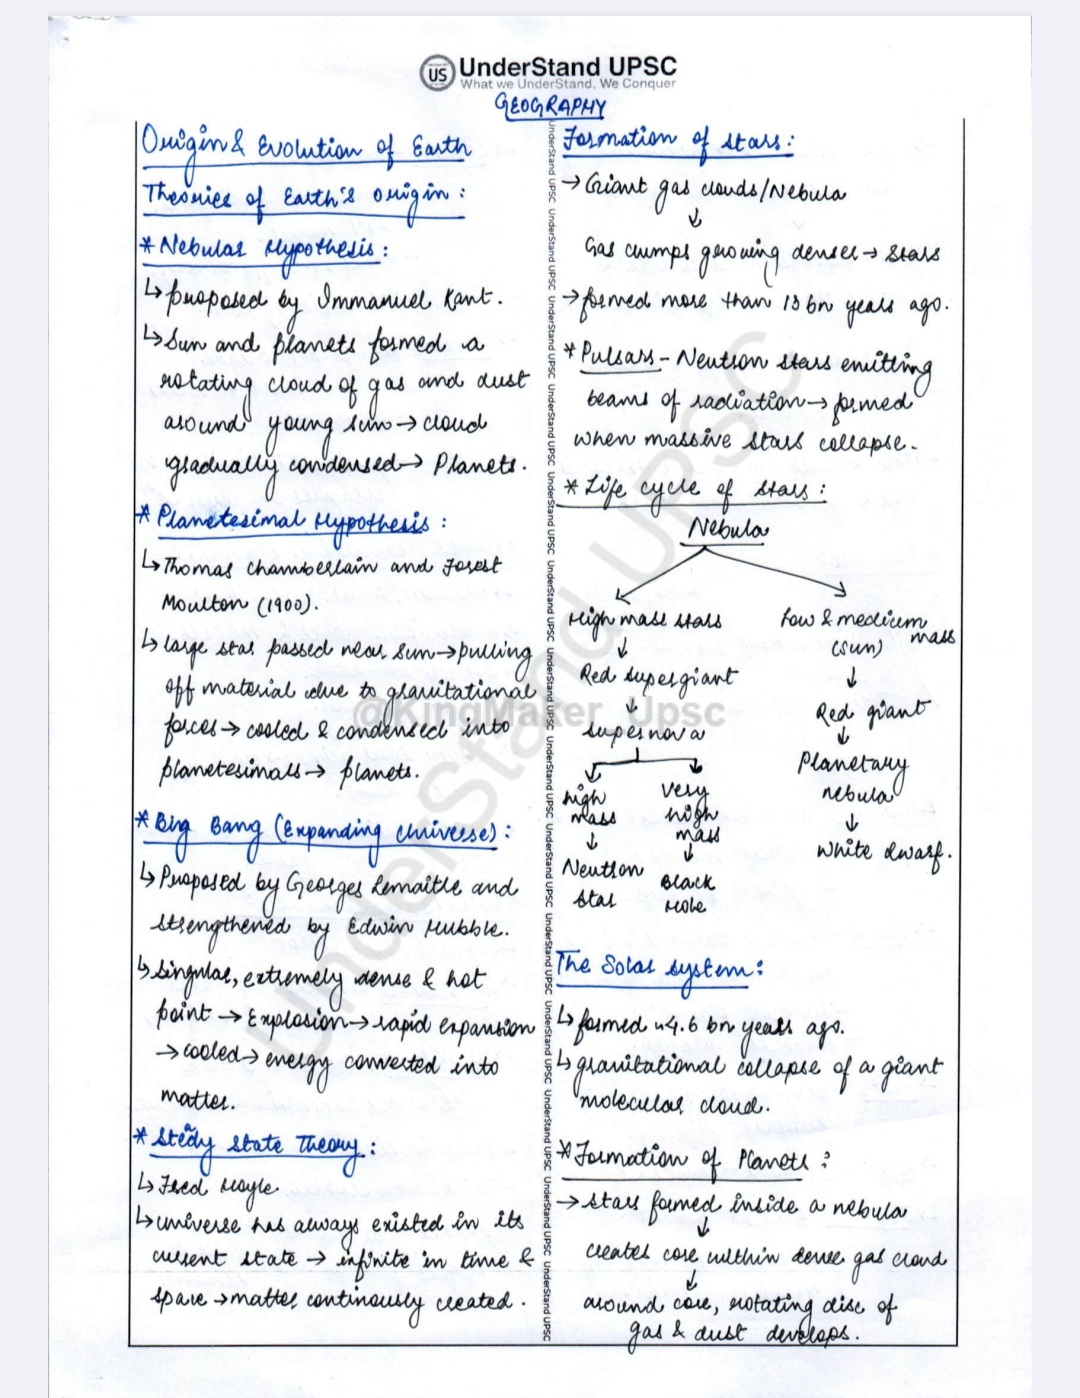 US UnderStand UPSC
What we UnderStand, We Conquer
GEOGRAPHY
Origin & Evolution of Earth
Theories of Earth's origin :
* Nebular Hypothesis :
↳ proposed by Immanuel Kant.
↳ Sun and planets formed a
rotating cloud of gas and dust
around young sun → cloud
gradually condensed → Planets.
* Planetesimal Hypothesis :
↳ Thomas Chamberlain and Forest
Moulton (1900).
↳ large star passed near sun → pulling
off material due to gravitational
forces → cooled & condensed into
planetesimals → planets.
* Big Bang (Expanding Universe) :
↳ Proposed by Georges Lemaitle and
strengthened by Edwin Hubble.
↳ Singular, extremely dense & hot
point → Explosion → rapid expansion
→ cooled → energy converted into
matter.
* Stedy State Theory :
↳ Fred Hoyle
↳ universe has always existed in its
current state → infinite in time &
space → matter continously created.
Formation of stars :
→ Giant gas clouds/Nebula
↓
Gas clumps growing denser → Stars
→ formed more than 13 bn years ago.
* Pulsars - Neutron stars emitting
beams of radiation → formed
when massive stars collapse.
* Life cycle of stars :
Nebula
High mass stars
↓
Red supergiant
↓
supernova
high
mass
↓
Neutron
star
very
high
mass
↓
Black
Hole
Low & medium
mass
(sun)
↓
Red giant
↓
Planetary
nebula
↓
White dwarf.
The Solar system :
↳ formed ~4.6 bn years ago.
↳ gravitational collapse of a giant
molecular cloud.
* Formation of Planets :
→ stars formed inside a nebula
↓
creates core within dense gas cloud
↓
around core, rotating disc of
gas & dust develops.
UnderStand UPSC UnderStand UPSC UnderStand UPSC UnderStand UPSC UnderStand UPSC UnderStand UPSC UnderStand UPSC UnderStand UPSC UnderStand UPSC UnderStand UPSC UnderStand UPSC UnderStand UPSC UnderStand UPSC UnderStand UPSC
UnderStand UPSC
@KingMaker_Upsc